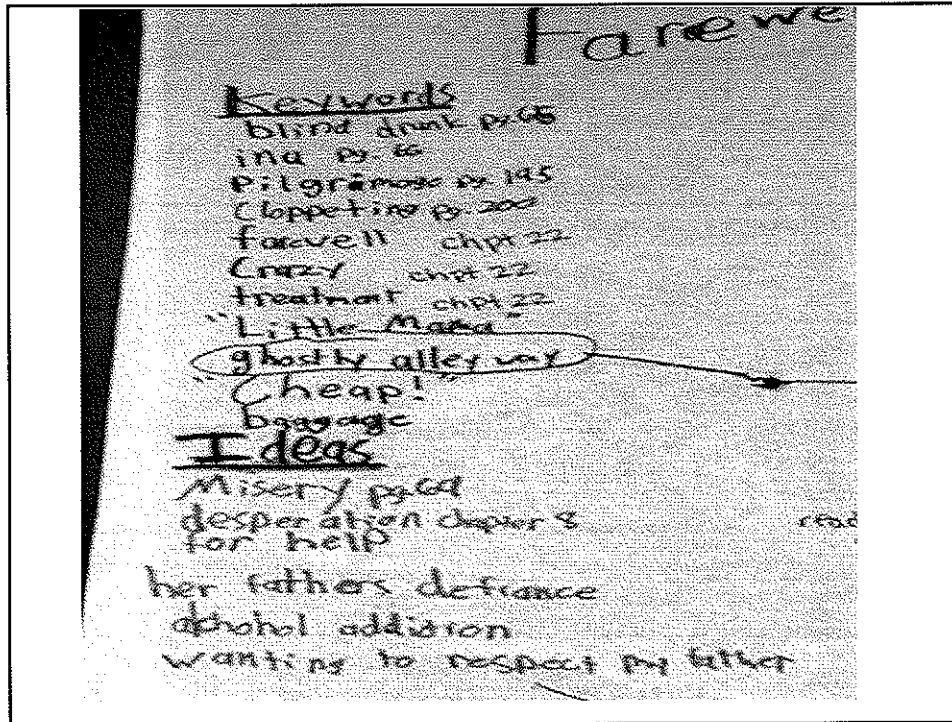 Farewe
Keywords
blind drunk pg. 65
ina pg. 66
Pilgrimage pg. 195
Cloppeting pg. 200
farevell chpt 22
Crazy chpt 22
treatment chpt 22
"Little Mama"
ghostly alley way
"Cheap!"
baggage
Ideas
Misery pg. 69
desperation chapter 8
for help
read
her fathers defiance
alchohol addiction
wanting to respect my father